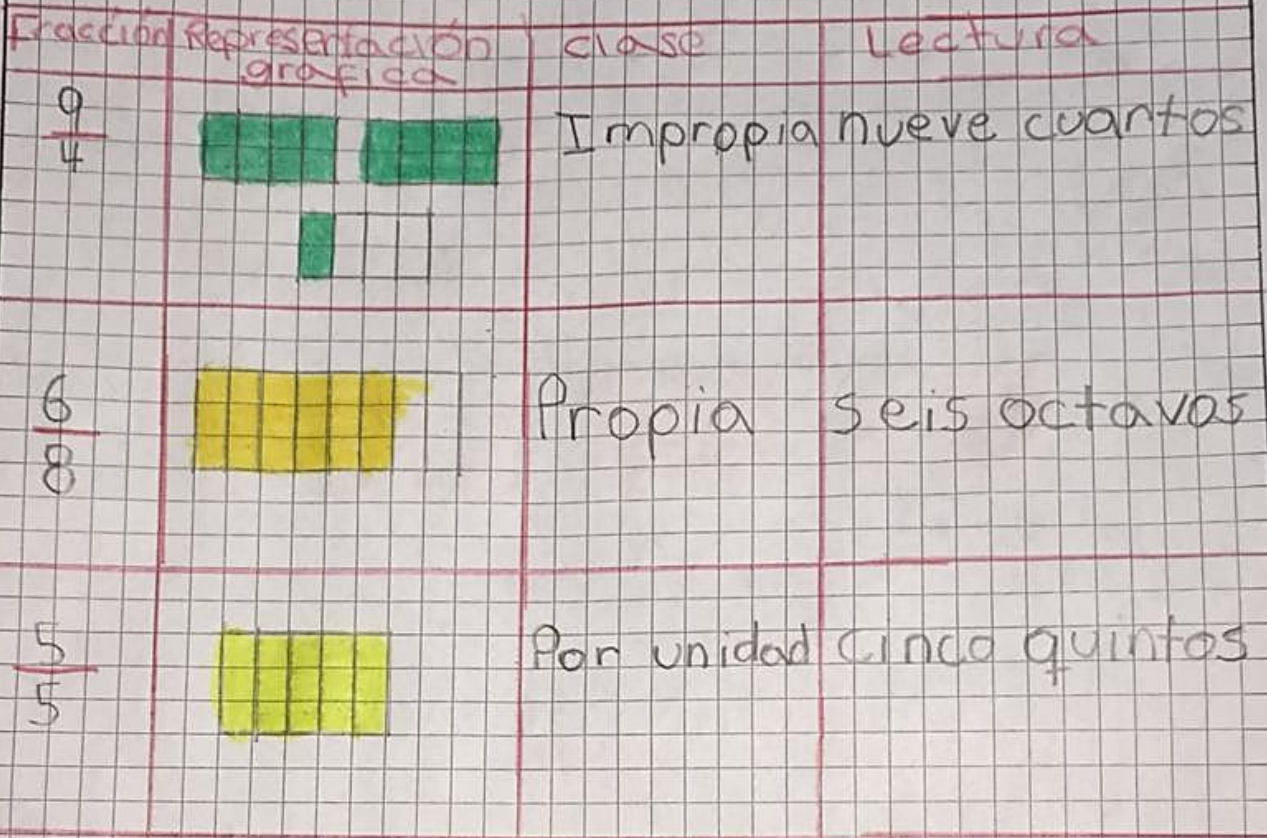 Fracción Representación clase Lectura
grafica
9/4 Impropia nueve cuantos
6/8 Propia seis octavos
5/5 Por unidad cinco quintos